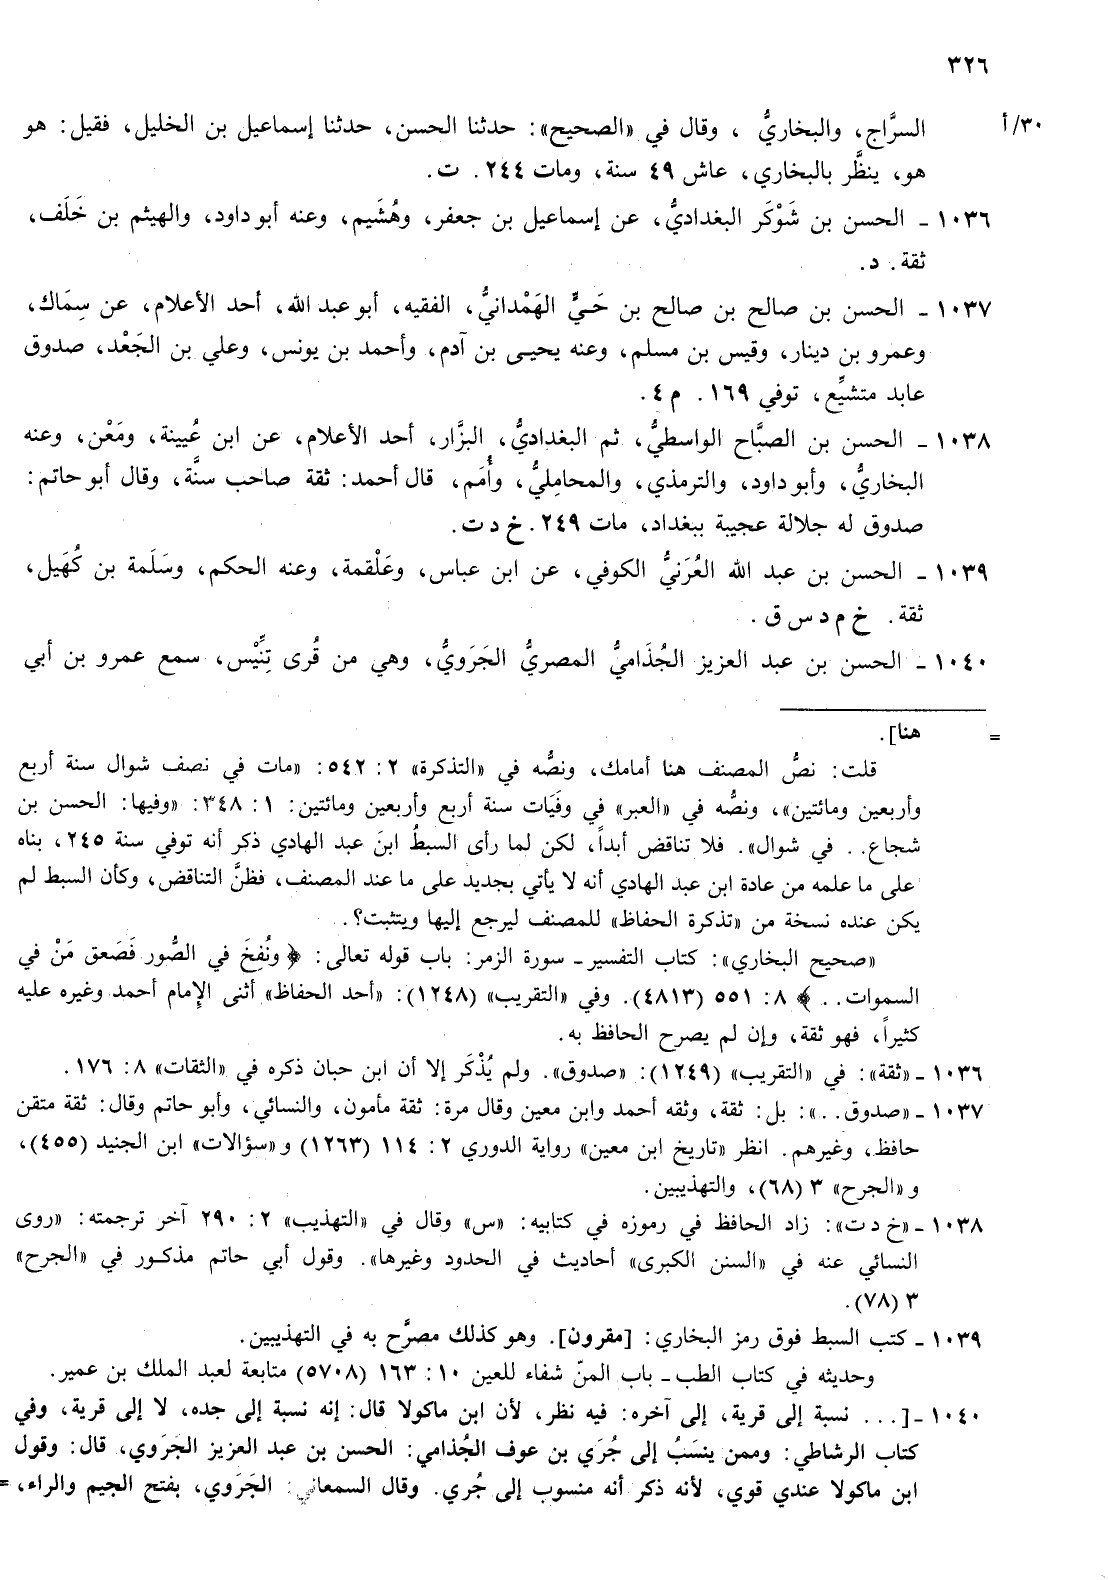 ٣٢٦
٣٠/أ السرَّاج، والبخاريُّ ، وقال في «الصحيح»: حدثنا الحسن، حدثنا إسماعيل بن الخليل، فقيل: هو
هو، ينظَّر بالبخاري، عاش ٤٩ سنة، ومات ٢٤٤. ت.
١٠٣٦ ـ الحسن بن شَوْكَر البغداديُّ، عن إسماعيل بن جعفر، وهُشَيم، وعنه أبو داود، والهيثم بن خَلَف،
ثقة. د.
١٠٣٧ ـ الحسن بن صالح بن صالح بن حَيٍّ الهَمْدانيُّ، الفقيه، أبو عبد الله، أحد الأعلام، عن سِمَاك،
وعمرو بن دينار، وقيس بن مسلم، وعنه يحيى بن آدم، وأحمد بن يونس، وعلي بن الجَعْد، صدوق
عابد متشيِّع، توفي ١٦٩. م ٤.
١٠٣٨ ـ الحسن بن الصبَّاح الواسطيُّ، ثم البغداديُّ، البزَّار، أحد الأعلام، عن ابن عُيينة، ومَعْن، وعنه
البخاريُّ، وأبو داود، والترمذي، والمحامِليُّ، وأُمَم، قال أحمد: ثقة صاحب سنَّة، وقال أبو حاتم:
صدوق له جلالة عجيبة ببغداد، مات ٢٤٩. خ د ت.
١٠٣٩ ـ الحسن بن عبد الله العُرَنيُّ الكوفي، عن ابن عباس، وعَلْقمة، وعنه الحكم، وسَلَمة بن كُهَيل،
ثقة. خ م د س ق.
١٠٤٠ ـ الحسن بن عبد العزيز الجُذَاميُّ المصريُّ الجَرَويُّ، وهي من قُرى تِنِّيْس، سمع عمرو بن أبي
= هنا].
قلت: نصُّ المصنف هنا أمامك، ونصُّه في «التذكرة» ٢: ٥٤٢: «مات في نصف شوال سنة أربع
وأربعين ومائتين»، ونصُّه في «العبر» في وفَيَات سنة أربع وأربعين ومائتين: ١: ٣٤٨: «وفيها: الحسن بن
شجاع.. في شوال». فلا تناقض أبداً، لكن لما رأى السبطُ ابنَ عبد الهادي ذكر أنه توفي سنة ٢٤٥، بناه
على ما علمه من عادة ابن عبد الهادي أنه لا يأتي بجديد على ما عند المصنف، فظنَّ التناقض، وكأن السبط لم
يكن عنده نسخة من «تذكرة الحفاظ» للمصنف ليرجع إليها ويتثبت؟.
«صحيح البخاري»: كتاب التفسير ـ سورة الزمر: باب قوله تعالى: ﴿ ونُفِخَ في الصُّور فَصَعق مَنْ في
السموات.. ﴾ ٨: ٥٥١ (٤٨١٣). وفي «التقريب» (١٢٤٨): «أحد الحفاظ» أثنى الإمام أحمد وغيره عليه
كثيراً، فهو ثقة، وإن لم يصرح الحافظ به.
١٠٣٦ ـ «ثقة»: في «التقريب» (١٢٤٩): «صدوق». ولم يُذْكَر إلا أن ابن حبان ذكره في «الثقات» ٨: ١٧٦.
١٠٣٧ ـ «صدوق..»: بل: ثقة، وثقه أحمد وابن معين وقال مرة: ثقة مأمون، والنسائي، وأبو حاتم وقال: ثقة متقن
حافظ، وغيرهم. انظر «تاريخ ابن معين» رواية الدوري ٢: ١١٤ (١٢٦٣) و «سؤالات» ابن الجنيد (٤٥٥)،
و «الجرح» ٣ (٦٨)، والتهذيبين.
١٠٣٨ ـ «خ د ت»: زاد الحافظ في رموزه في كتابيه: «س» وقال في «التهذيب» ٢: ٢٩٠ آخر ترجمته: «روى
النسائي عنه في «السنن الكبرى» أحاديث في الحدود وغيرها». وقول أبي حاتم مذكور في «الجرح»
٣ (٧٨).
١٠٣٩ ـ كتب السبط فوق رمز البخاري: [مقرون]. وهو كذلك مصرَّح به في التهذيبين.
وحديثه في كتاب الطب ـ باب المنّ شفاء للعين ١٠: ١٦٣ (٥٧٠٨) متابعة لعبد الملك بن عمير.
١٠٤٠ ـ [... نسبة إلى قرية، إلى آخره: فيه نظر، لأن ابن ماكولا قال: إنه نسبة إلى جده، لا إلى قرية، وفي
كتاب الرشاطي: وممن ينسَبُ إلى جُرَي بن عوف الجُذامي: الحسن بن عبد العزيز الجَرَوي، قال: وقول
ابن ماكولا عندي قوي، لأنه ذكر أنه منسوب إلى جُري. وقال السمعاني: الجَرَوي، بفتح الجيم والراء، =